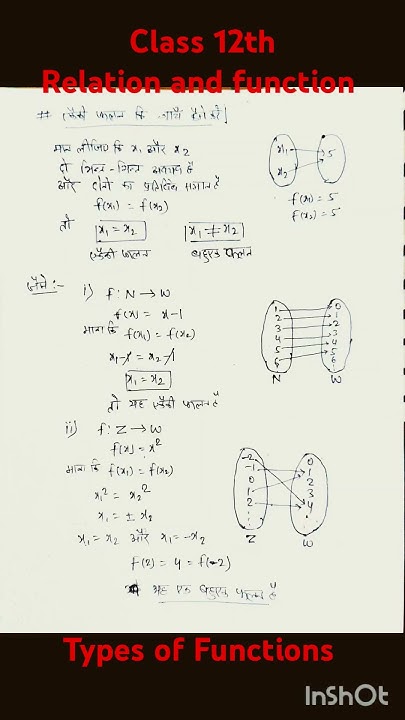 Class 12th
Relation and function
# एकैकी फलन कि जाँच कैसे करें |
मान लीजिए कि x₁ और x₂
दो भिन्न-भिन्न अवयव है
और दोनों का प्रतिबिंब समान है
f(x₁) = f(x₂)
तो x₁ = x₂ x₁ ≠ x₂
एकैकी फलन बहुएक फलन
x₁
x₂
5
f(x₁) = 5
f(x₂) = 5
जैसे :- i) f: N → W
f(x) = x-1
माना कि f(x₁) = f(x₂)
x₁-1 = x₂-1
x₁ = x₂
तो यह एकैकी फलन है
1 0
2 1
3 2
4 3
5 4
6 5
: 6
N W
ii) f: Z → W
f(x) = x²
माना कि f(x₁) = f(x₂)
x₁² = x₂²
x₁ = ± x₂
x₁ = x₂ और x₁ = -x₂
f(2) = 4 = f(-2)
यह एक बहुएक फलन है
-2 0
-1 1
0 2
1 3
2 4
: :
Z W
Types of Functions
InShOt